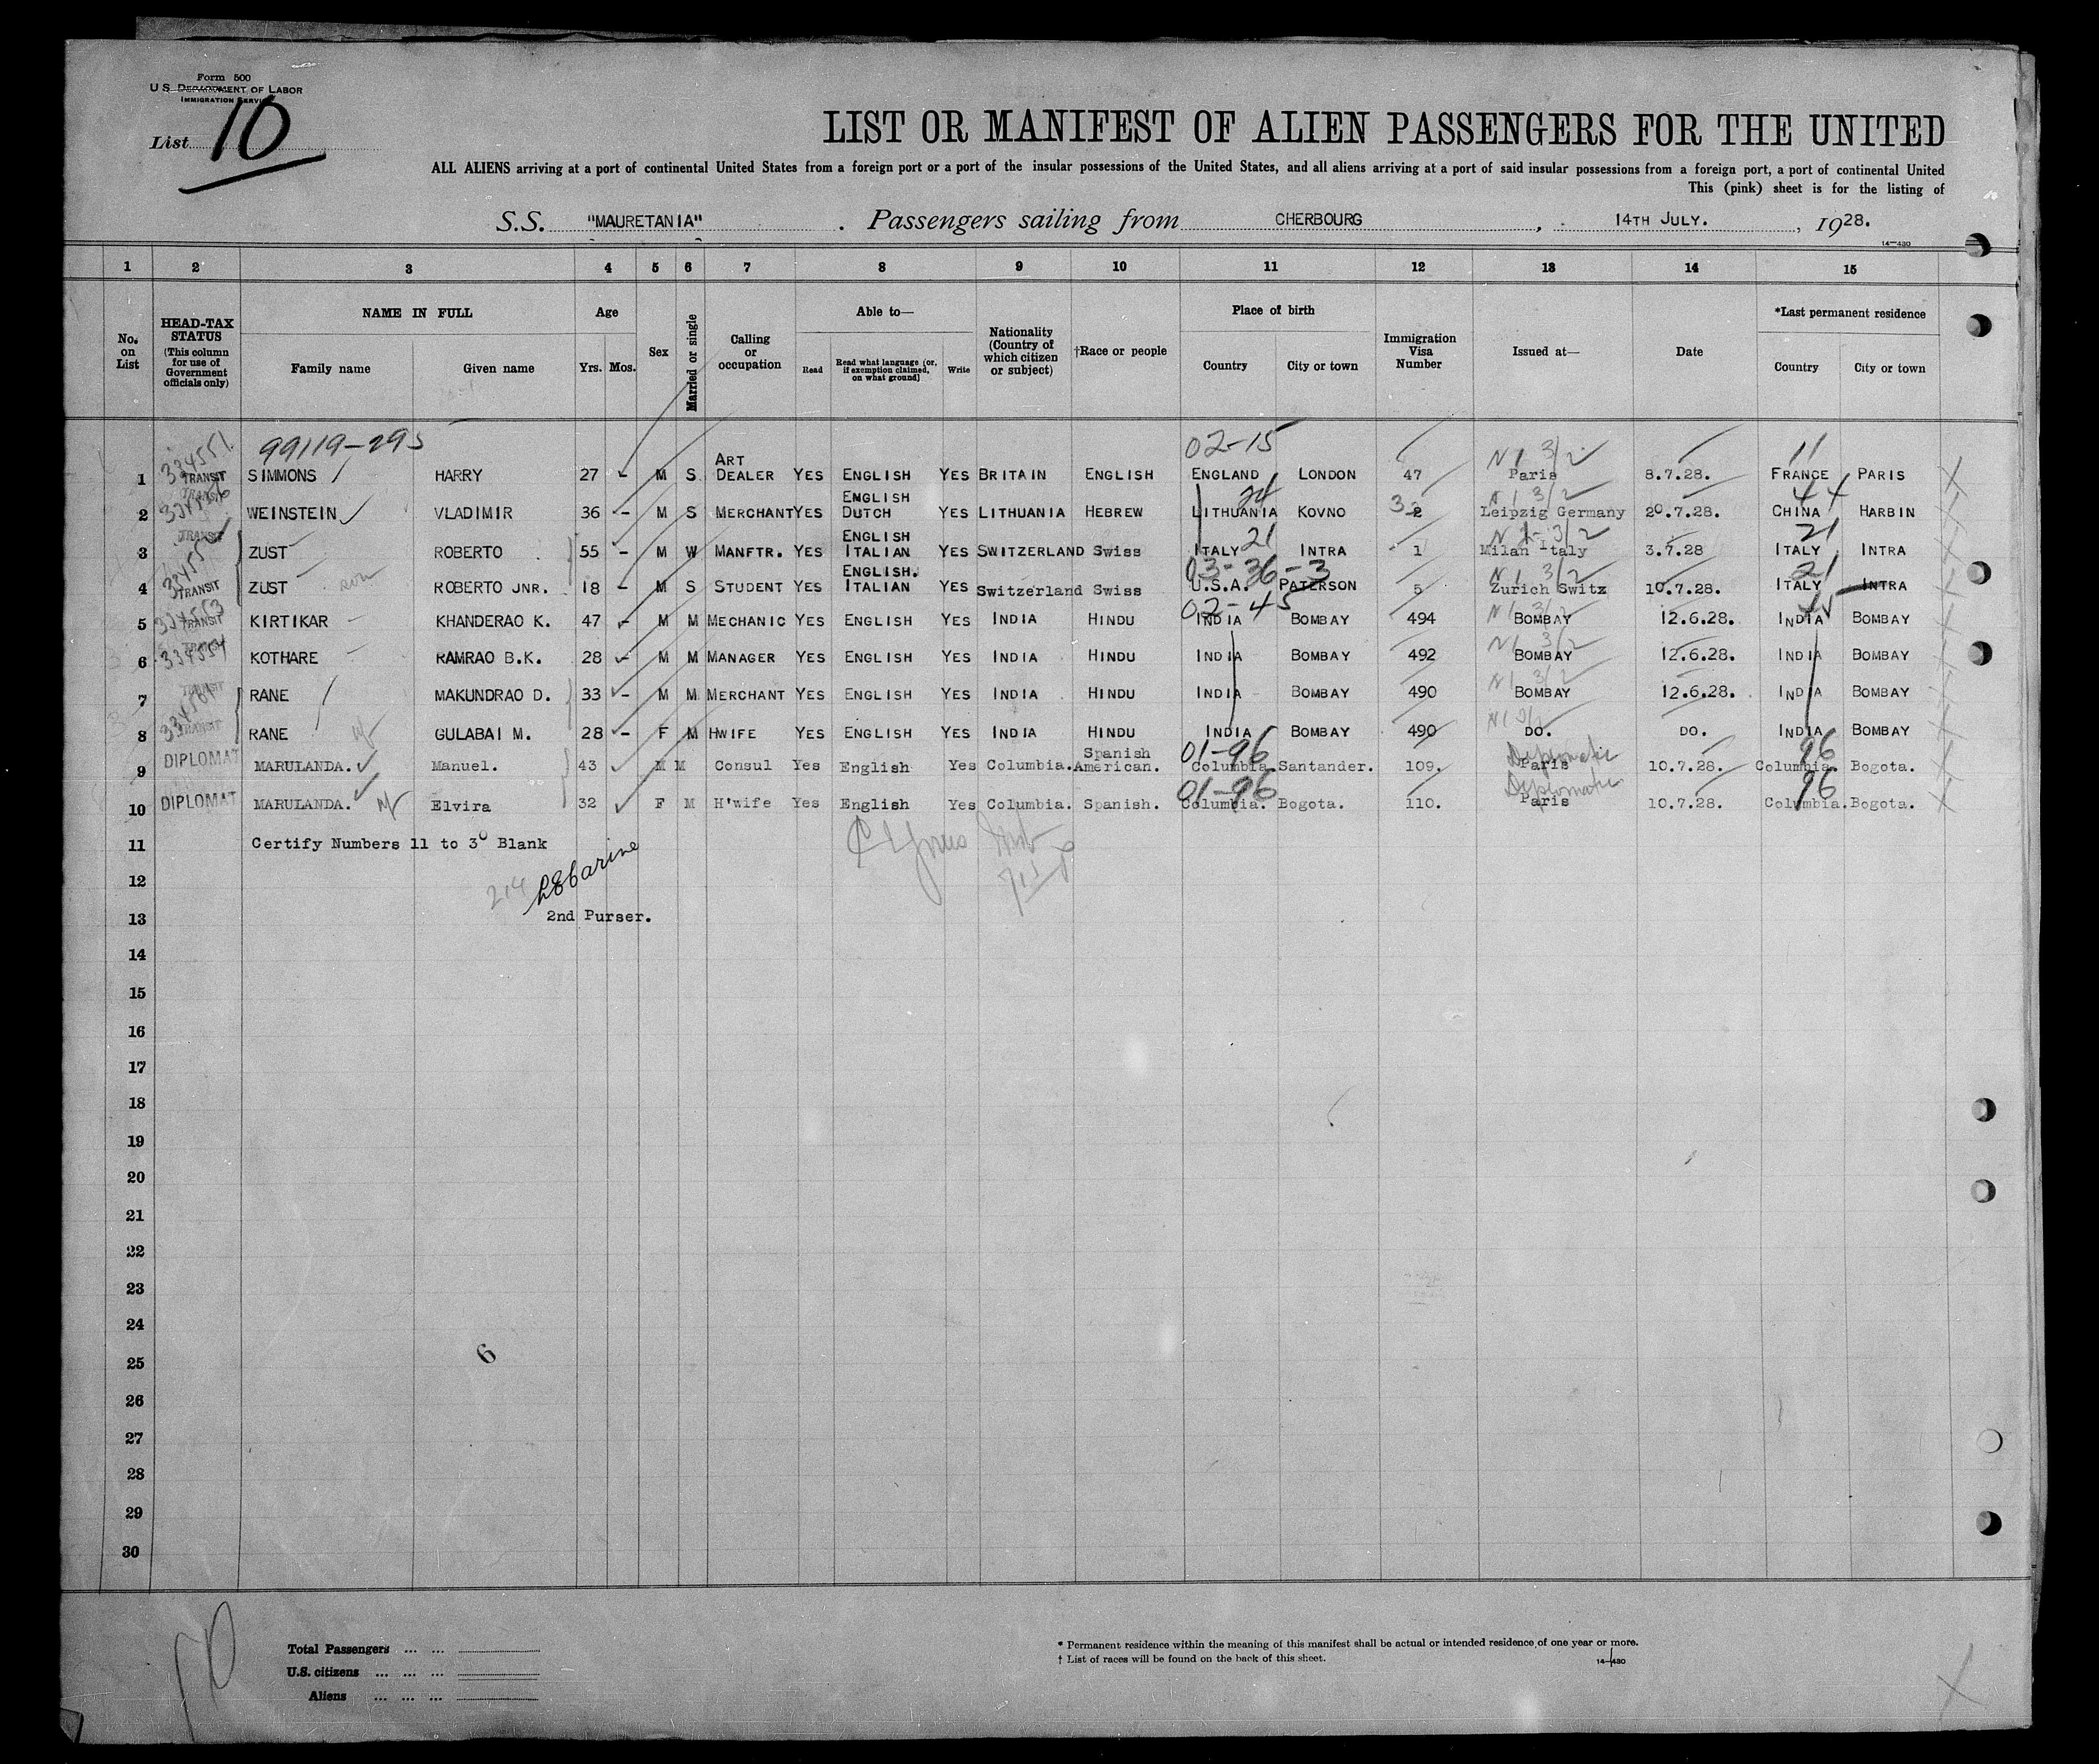 Form 500
U S DEPARTMENT OF LABOR
IMMIGRATION SERVICE
List 10
LIST OR MANIFEST OF ALIEN PASSENGERS FOR THE UNITED
ALL ALIENS arriving at a port of continental United States from a foreign port or a port of the insular possessions of the United States, and all aliens arriving at a port of said insular possessions from a foreign port, a port of continental United
This (pink) sheet is for the listing of
S.S. "MAURETANIA" . Passengers sailing from CHERBOURG , 14TH JULY. , 1928.
14—430
1 2 3 4 5 6 7 8 9 10 11 12 13 14 15
No. on List
HEAD-TAX STATUS (This column for use of Government officials only)
NAME IN FULL
Family name Given name
Age
Yrs. Mos.
Sex
Married or single
Calling or occupation
Able to—
Read Read what language (or, if exemption claimed, on what ground) Write
Nationality (Country of which citizen or subject)
†Race or people
Place of birth
Country City or town
Immigration Visa Number
Issued at—
Date
*Last permanent residence
Country City or town
99119-295 02-15 N1 3/2 11
1 334551 TRANSIT SIMMONS HARRY 27 M S ART DEALER YES ENGLISH YES BRITAIN ENGLISH ENGLAND LONDON 47 Paris 8.7.28. FRANCE PARIS
24 N1 3/2 44
2 TRANSIT WEINSTEIN VLADIMIR 36 – M S MERCHANT YES ENGLISH DUTCH YES LITHUANIA HEBREW LITHUANIA KOVNO 32 Leipzig Germany 20.7.28. CHINA HARBIN
21 N1 3/2 21
3 TRANSIT ZUST ROBERTO 55 – M W MANFTR. YES ENGLISH ITALIAN YES SWITZERLAND Swiss ITALY INTRA 1 Milan Italy 3.7.28 ITALY INTRA
03-36-3 N1 3/2 21
4 TRANSIT ZUST son ROBERTO JNR. 18 – M S STUDENT YES ENGLISH. ITALIAN YES Switzerland Swiss U.S.A. PATERSON 5 Zurich Switz 10.7.28. ITALY INTRA
02-45 N1 3/2 45
5 334553 TRANSIT KIRTIKAR KHANDERAO K. 47 – M M MECHANIC YES ENGLISH YES INDIA HINDU INDIA BOMBAY 494 BOMBAY 12.6.28. INDIA BOMBAY
N1 3/2
6 334554 TRANSIT KOTHARE RAMRAO B.K. 28 – M M MANAGER YES ENGLISH YES INDIA HINDU INDIA BOMBAY 492 BOMBAY 12.6.28. INDIA BOMBAY
N1 3/2
7 TRANSIT RANE MAKUNDRAO D. 33 – M M MERCHANT YES ENGLISH YES INDIA HINDU INDIA BOMBAY 490 BOMBAY 12.6.28. INDIA BOMBAY
N1 3/2
8 TRANSIT RANE GULABAI M. 28 – F M HWIFE YES ENGLISH YES INDIA HINDU INDIA BOMBAY 490 DO. DO. INDIA BOMBAY
01-96 Diplomatic 96
9 DIPLOMAT MARULANDA. Manuel. 43 M M Consul Yes English Yes Columbia. Spanish American. Columbia. Santander. 109. Paris 10.7.28. Columbia. Bogota.
01-96 Diplomatic 96
10 DIPLOMAT MARULANDA. Elvira 32 F M H'wife Yes English Yes Columbia. Spanish. Columbia. Bogota. 110. Paris 10.7.28. Columbia. Bogota.
11 Certify Numbers 11 to 30 Blank
12 214
13 2nd Purser.
14
15
16
17
18
19
20
21
22
23
24
25 6
26
27
28
29
30
10
Total Passengers ... ...
U.S. citizens ... ... ...
Aliens ... ... ...
* Permanent residence within the meaning of this manifest shall be actual or intended residence of one year or more.
† List of races will be found on the back of this sheet.
14—430